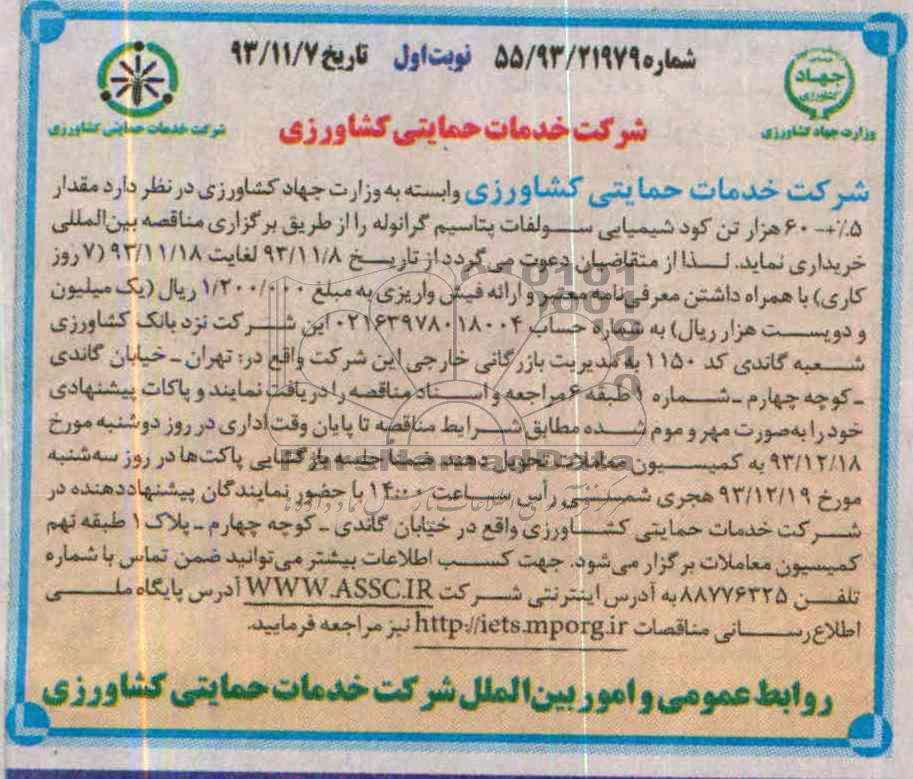 شماره ۵۵/۹۳/۲۱۹۷۹ نوبت اول تاریخ ۹۳/۱۱/۷
جهاد
کشاورزی
وزارت جهاد کشاورزی
شرکت خدمات حمایتی کشاورزی
شرکت خدمات حمایتی کشاورزی
شرکت خدمات حمایتی کشاورزی وابسته به وزارت جهاد کشاورزی در نظر دارد مقدار
۵٪+- ۶۰ هزار تن کود شیمیایی سولفات پتاسیم گرانوله را از طریق برگزاری مناقصه بین‌المللی
خریداری نماید. لذا از متقاضیان دعوت می گردد از تاریخ ۹۳/۱۱/۸ لغایت ۹۳/۱۱/۱۸ (۷ روز
کاری) با همراه داشتن معرفی‌نامه معتبر و ارائه فیش واریزی به مبلغ ۱/۲۰۰/۰۰۰ ریال (یک میلیون
و دویست هزار ریال) به شماره حساب ۰۲۱۶۳۹۷۸۰۱۸۰۰۴ این شرکت نزد بانک کشاورزی
شعبه گاندی کد ۱۱۵۰ به مدیریت بازرگانی خارجی این شرکت واقع در: تهران ـ خیابان گاندی
ـ کوچه چهارم ـ شماره ۱ طبقه ۶ مراجعه و اسناد مناقصه را دریافت نمایند و پاکات پیشنهادی
خود را به‌صورت مهر و موم شده مطابق شرایط مناقصه تا پایان وقت اداری در روز دوشنبه مورخ
۹۳/۱۲/۱۸ به کمیسیون معاملات تحویل دهند ضمناً جلسه بازگشایی پاکت‌ها در روز سه‌شنبه
مورخ ۹۳/۱۲/۱۹ هجری شمسی رأس ساعت ۱۴:۰۰ با حضور نمایندگان پیشنهاددهنده در
شرکت خدمات حمایتی کشاورزی واقع در خیابان گاندی ـ کوچه چهارم ـ پلاک ۱ طبقه نهم
کمیسیون معاملات برگزار می‌شود. جهت کسب اطلاعات بیشتر می‌توانید ضمن تماس با شماره
تلفن ۸۸۷۷۶۳۲۵ به آدرس اینترنتی شرکت WWW.ASSC.IR آدرس پایگاه ملی
اطلاع‌رسانی مناقصات http://iets.mporg.ir نیز مراجعه فرمایید.
روابط عمومی و امور بین‌الملل شرکت خدمات حمایتی کشاورزی